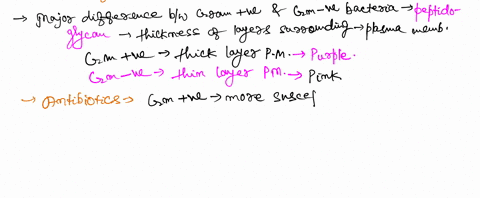 → Major difference b/w Gram +ve & Gm -ve bacteria → peptido-
glycan → thickness of layers surrounding → plasma memb.
Gm +ve → thick layer P.M. → Purple.
Gm -ve → thin layer P.M. → Pink
→ Antibiotics → Gm +ve → more suscep